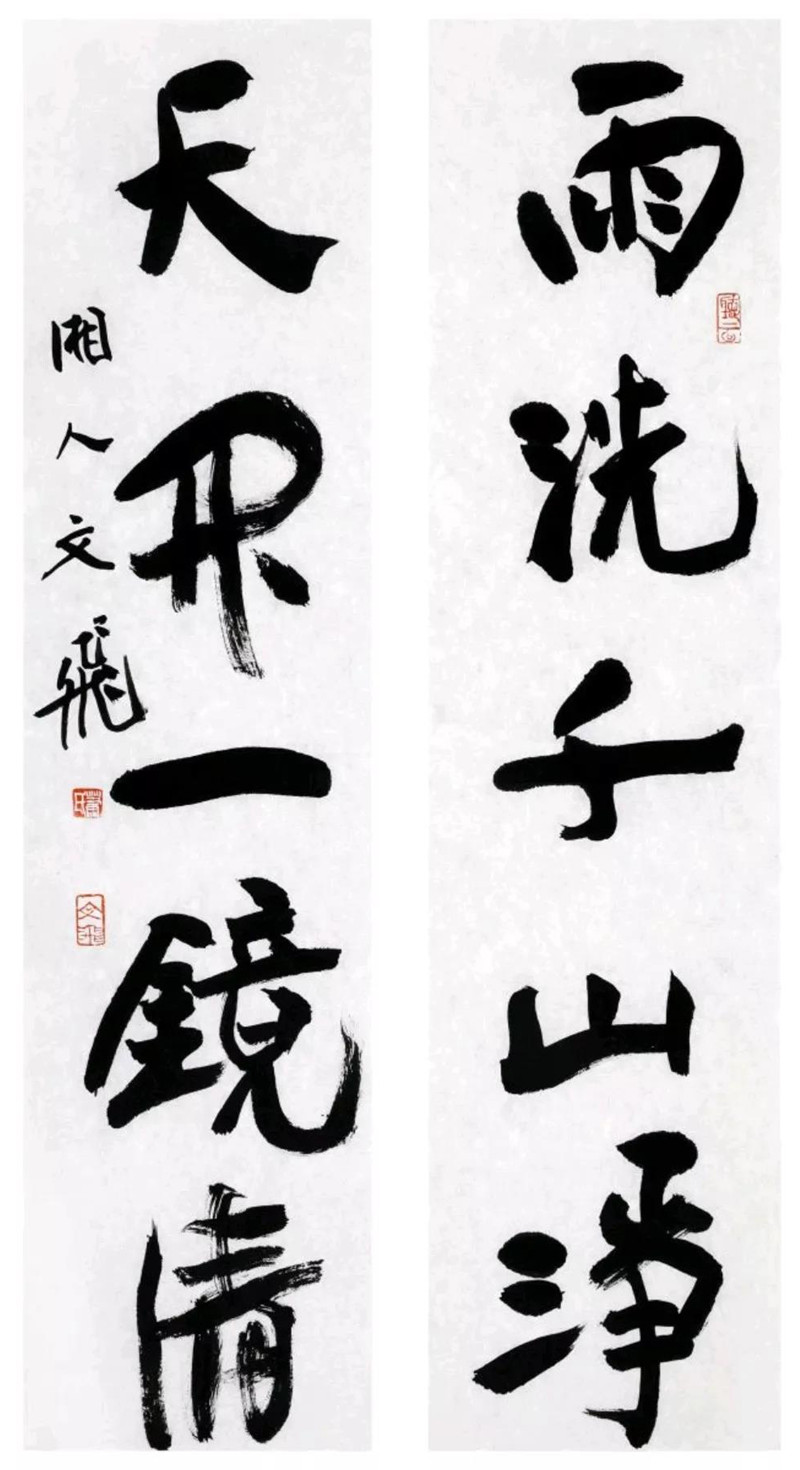 雨洗千山淨
天開一鏡清
湘人文飛
文飛